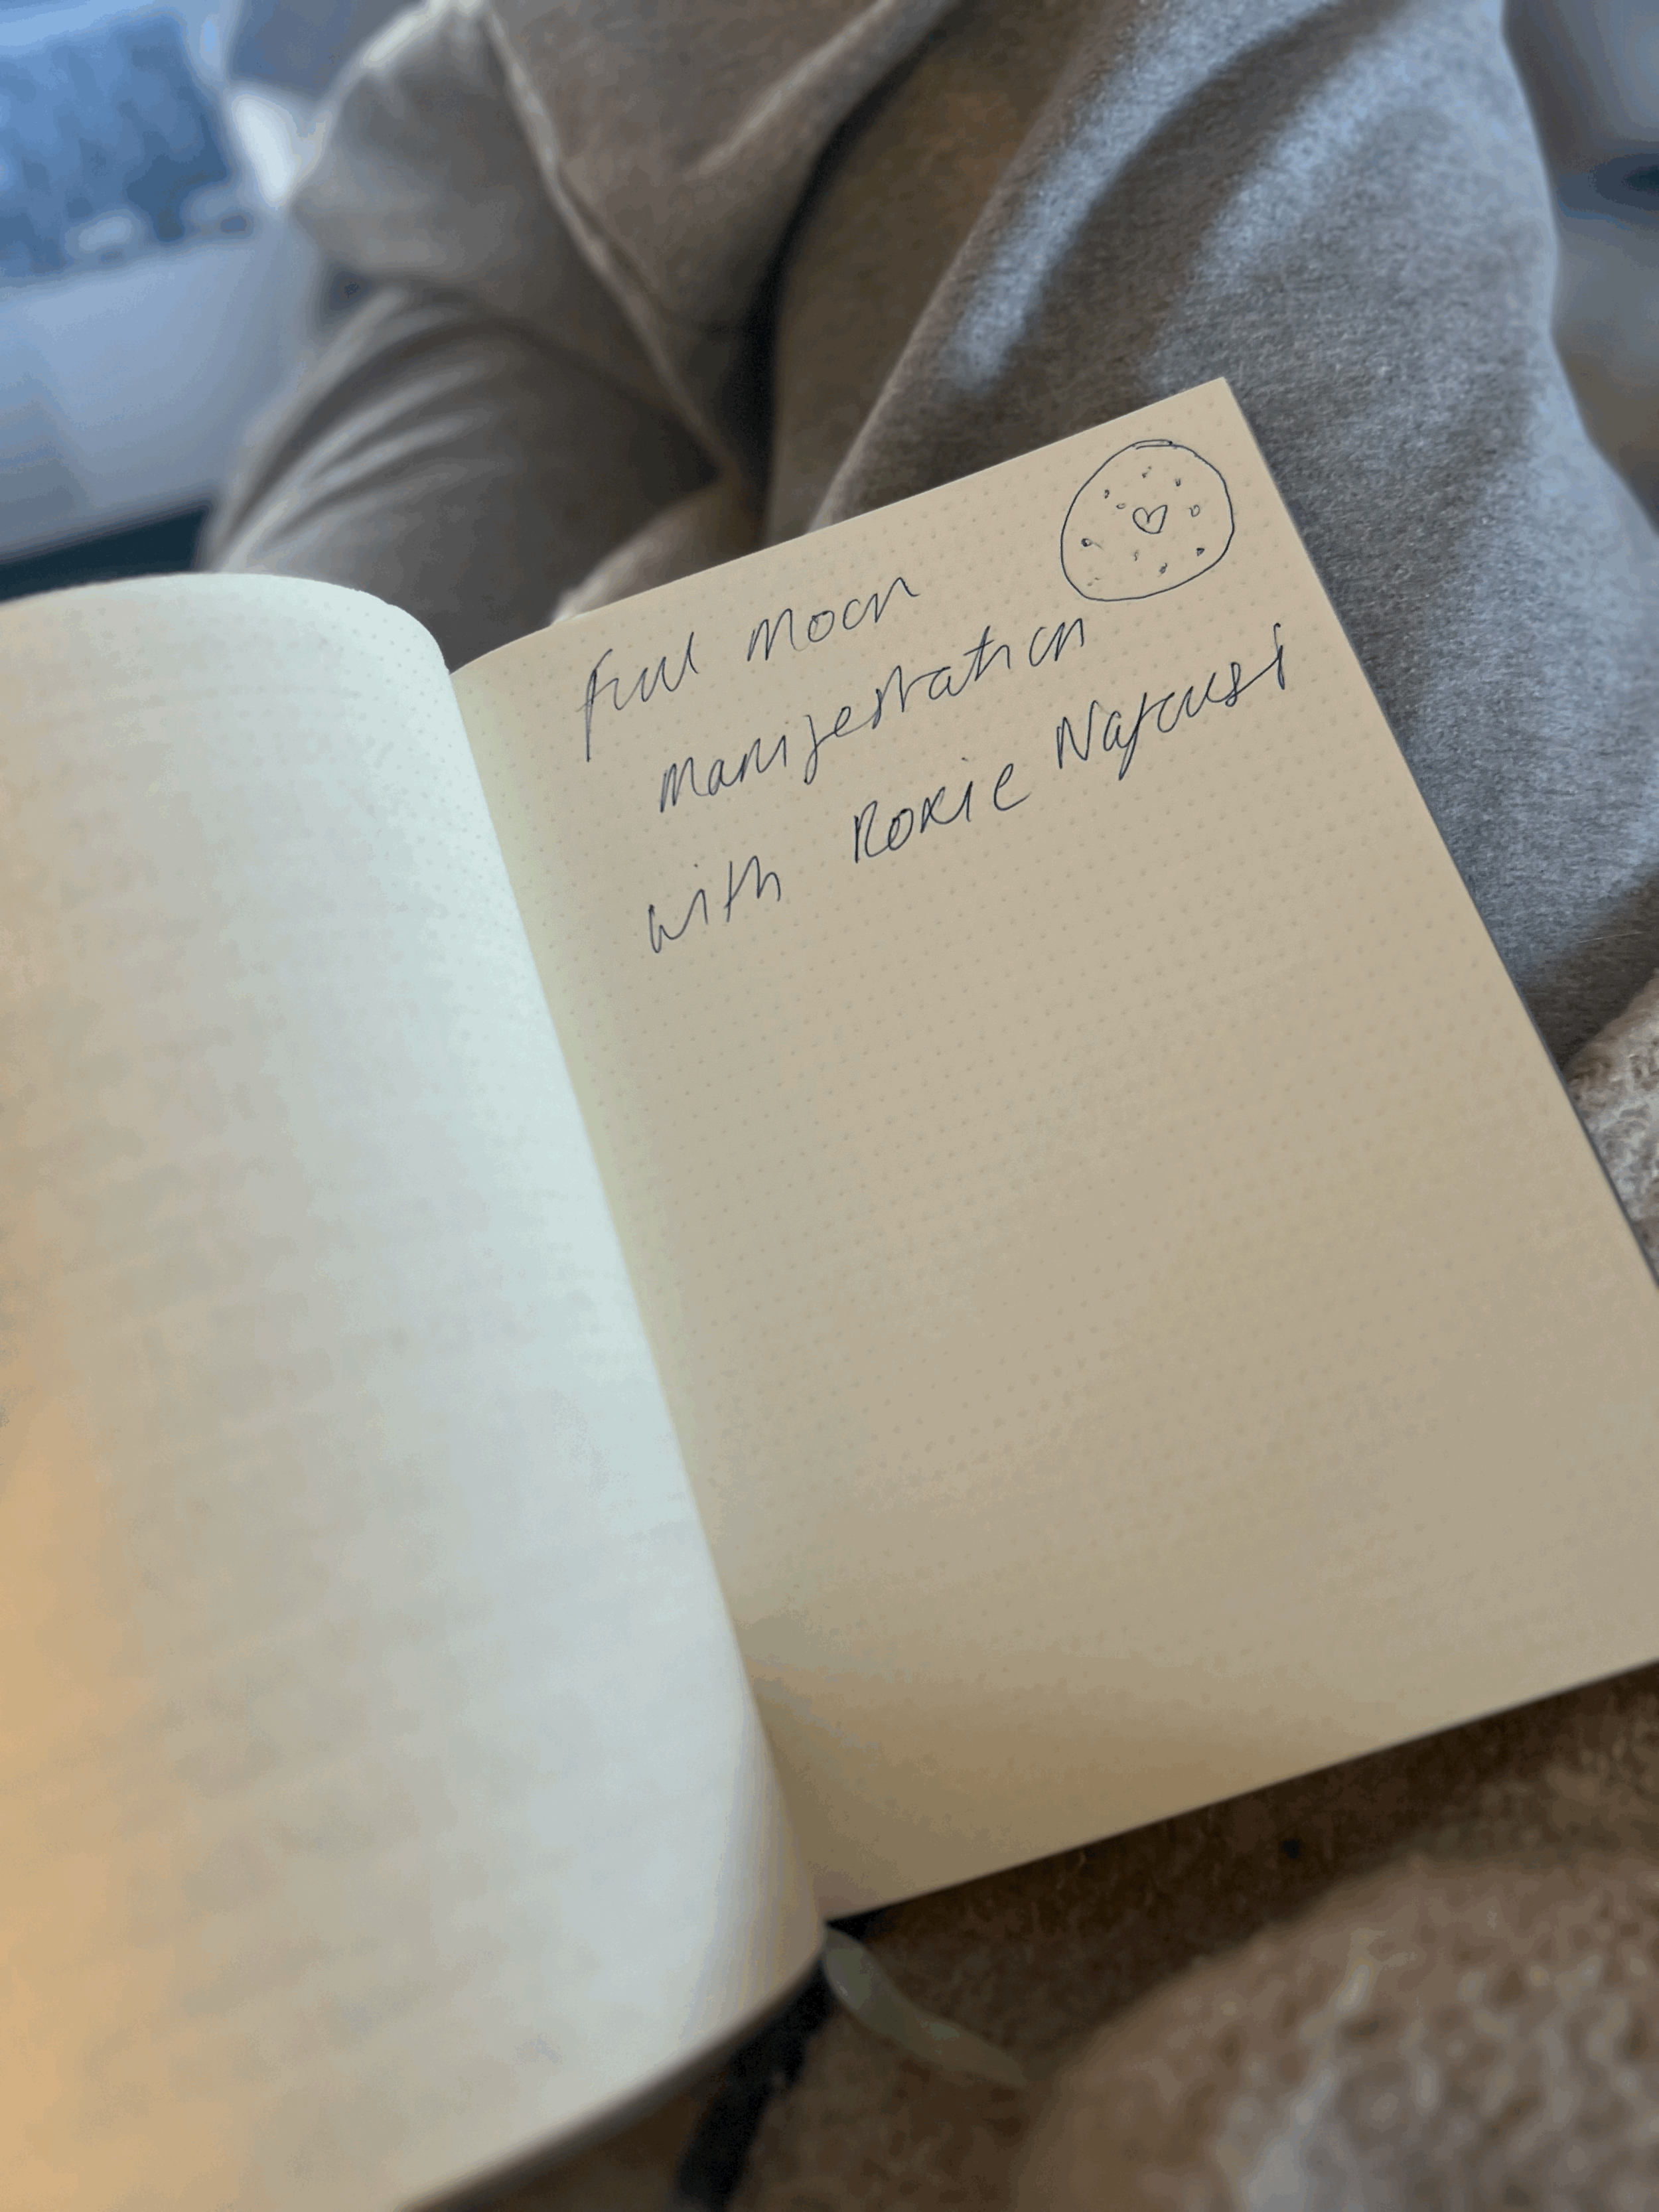 Full Moon
Manifestation
with Roxie Nafousi